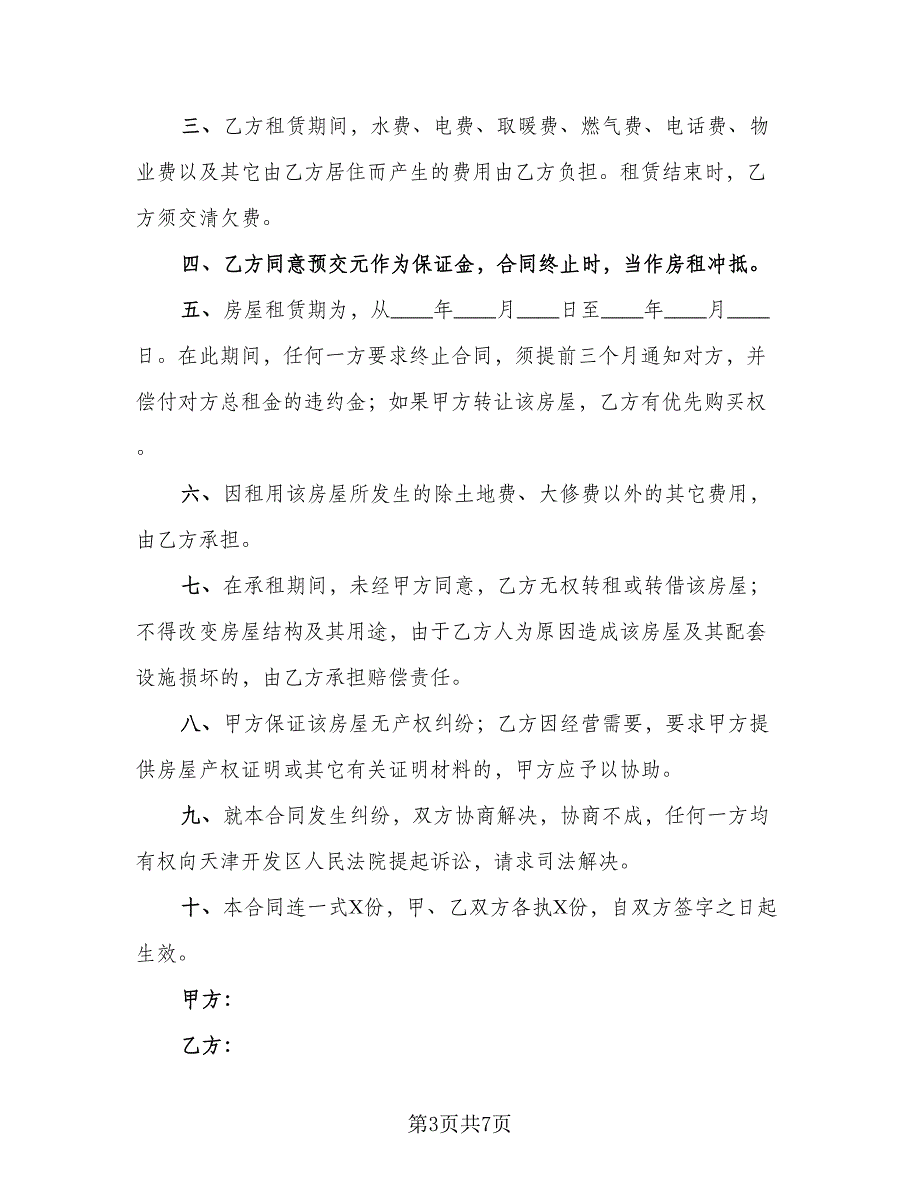 三、乙方租赁期间，水费、电费、取暖费、燃气费、电话费、物
业费以及其它由乙方居住而产生的费用由乙方负担。租赁结束时，乙
方须交清欠费。
四、乙方同意预交元作为保证金，合同终止时，当作房租冲抵。
五、房屋租赁期为，从____年____月____日至____年____月____
日。在此期间，任何一方要求终止合同，须提前三个月通知对方，并
偿付对方总租金的违约金；如果甲方转让该房屋，乙方有优先购买权
。
六、因租用该房屋所发生的除土地费、大修费以外的其它费用，
由乙方承担。
七、在承租期间，未经甲方同意，乙方无权转租或转借该房屋；
不得改变房屋结构及其用途，由于乙方人为原因造成该房屋及其配套
设施损坏的，由乙方承担赔偿责任。
八、甲方保证该房屋无产权纠纷；乙方因经营需要，要求甲方提
供房屋产权证明或其它有关证明材料的，甲方应予以协助。
九、就本合同发生纠纷，双方协商解决，协商不成，任何一方均
有权向天津开发区人民法院提起诉讼，请求司法解决。
十、本合同连一式X份，甲、乙双方各执X份，自双方签字之日起
生效。
甲方：
乙方：
第3页共7页